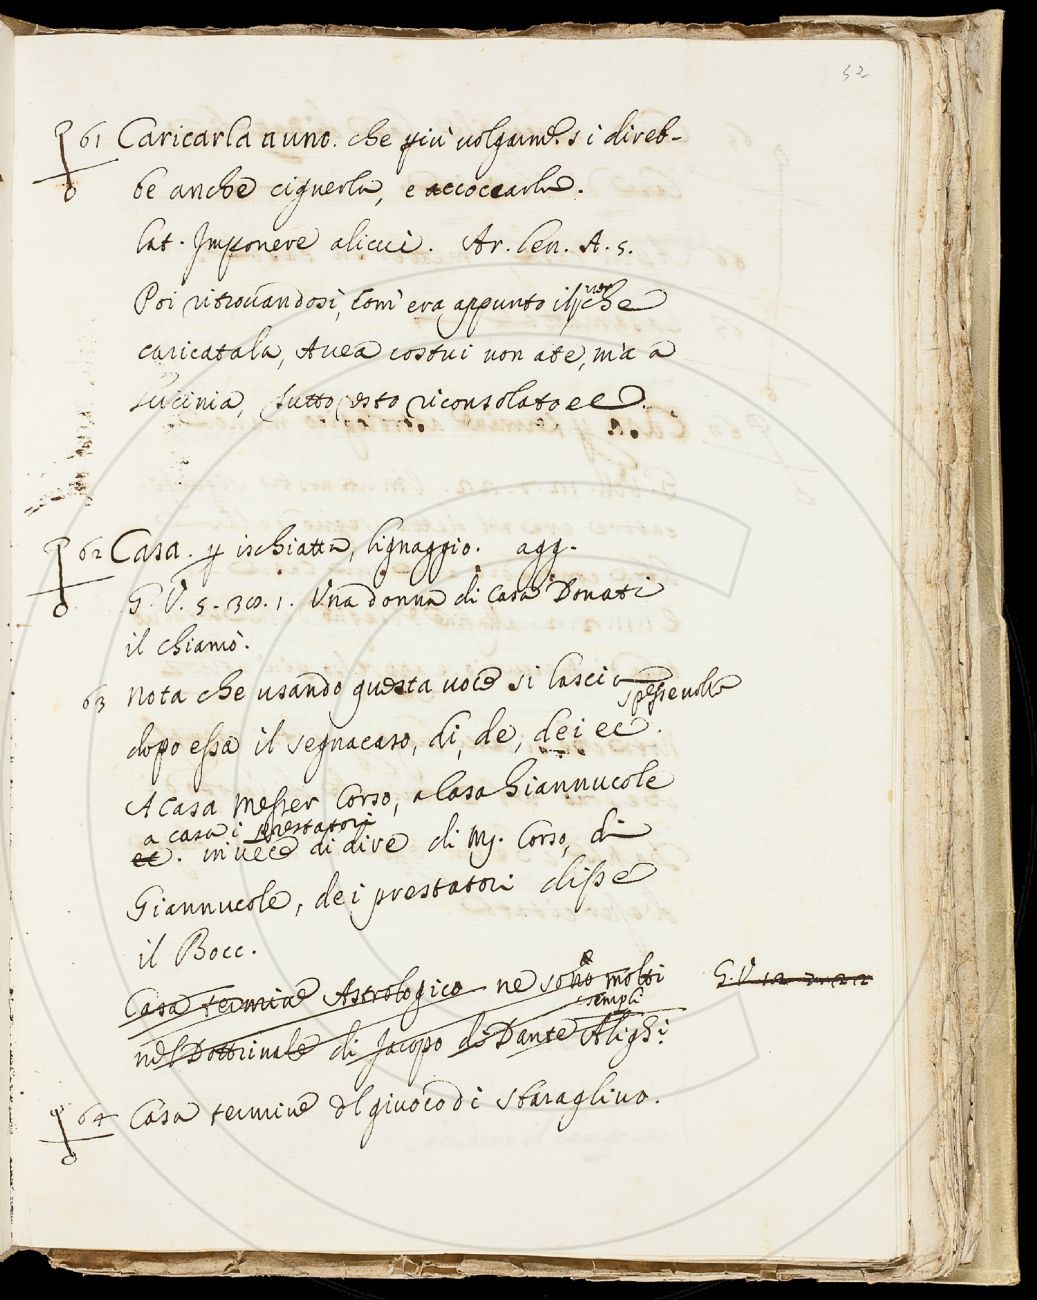 52
61 Caricarla a uno. che più volgarm.e si direb-
be anche cignerla, e accoccarla.
Lat. Imponere alicui. Ar. Len. A. 5.
Poi ritrovandosi, Com' era appunto il ver che
caricatala, Avea costui non a te, ma a
Licinia, tutto resto riconsolato ec.
62 Casa. p ischiatta, lignaggio. agg.
G. V. 5. 38. 1. Una donna di Casa Donati
il chiamò.
63 Nota che usando questa voce si lascia spesse volte
dopo essa il segnacaso, di, de, dei ec.
A casa Messer Corso, a Casa Giannucole
a casa i prestatori
ec. invece di dire di M. Corso, di
Giannucole, dei prestatori disse
il Bocc.
Casa termine Astrologico ne sono molti esempli G. V. 12. 2. 22
nel Dottrinale di Jacopo di Dante Alighi
64 Casa termine del giuoco di sbaraglino.